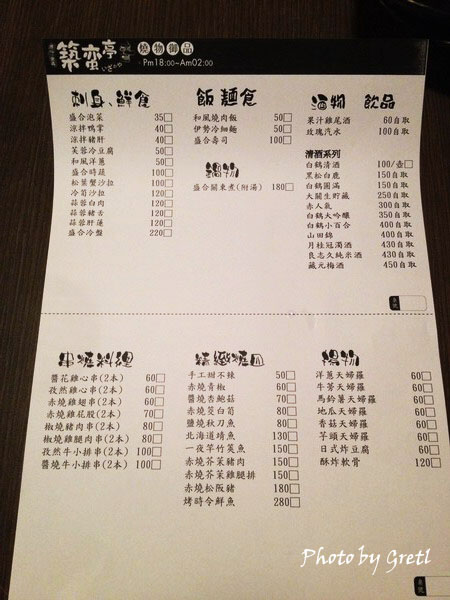 築蛮亭
燒物御品
Pm18:00~Am02:00
刺身、鮮食
盛合泡菜 35
涼拌鴨掌 40
涼拌豬肝 40
芙蓉冷豆腐 50
和風洋蔥 50
盛合時蔬 100
松葉蟹沙拉 100
冷筍沙拉 120
蒜蓉白肉 120
蒜蓉豬舌 120
蒜蓉肝蓮 120
盛合冷盤 220
飯麵食
和風燒肉飯 50
伊勢冷細麵 50
盛合壽司 100
鍋物
盛合關東煮(附湯) 180
酒物 飲品
果汁雞尾酒 60自取
玫瑰汽水 100自取
清酒系列
白鶴清酒 100/壺
黑松白鹿 150自取
白鶴圓滿 150自取
大關生貯藏 250自取
赤人氣 300自取
白鶴大吟釀 350自取
白鶴小百合 400自取
山田錦 400自取
月桂冠濁酒 430自取
良志久純米酒 430自取
藏元梅酒 450自取
串燒料理
醬花雞心串(2本) 60
孜然雞心串(2本) 60
赤燒雞翅串(2本) 60
赤燒雞花股(2本) 70
椒燒豬肉串(2本) 80
椒燒雞腿肉串(2本) 80
孜然牛小排串(2本) 100
醬燒牛小排串(2本) 100
精緻燒皿
手工甜不辣 50
赤燒青椒 60
醬燒杏鮑菇 70
赤燒茭白筍 80
鹽燒秋刀魚 80
北海道晴魚 130
一夜竿竹筴魚 150
赤燒芥茉豬肉 150
赤燒芥茉雞腿排 150
赤燒松阪豬 180
烤時令鮮魚 280
揚物
洋蔥天婦羅 60
牛蒡天婦羅 60
馬鈴薯天婦羅 60
地瓜天婦羅 60
香菇天婦羅 60
芋頭天婦羅 60
日式炸豆腐 60
酥炸軟骨 120
Photo by Gretl